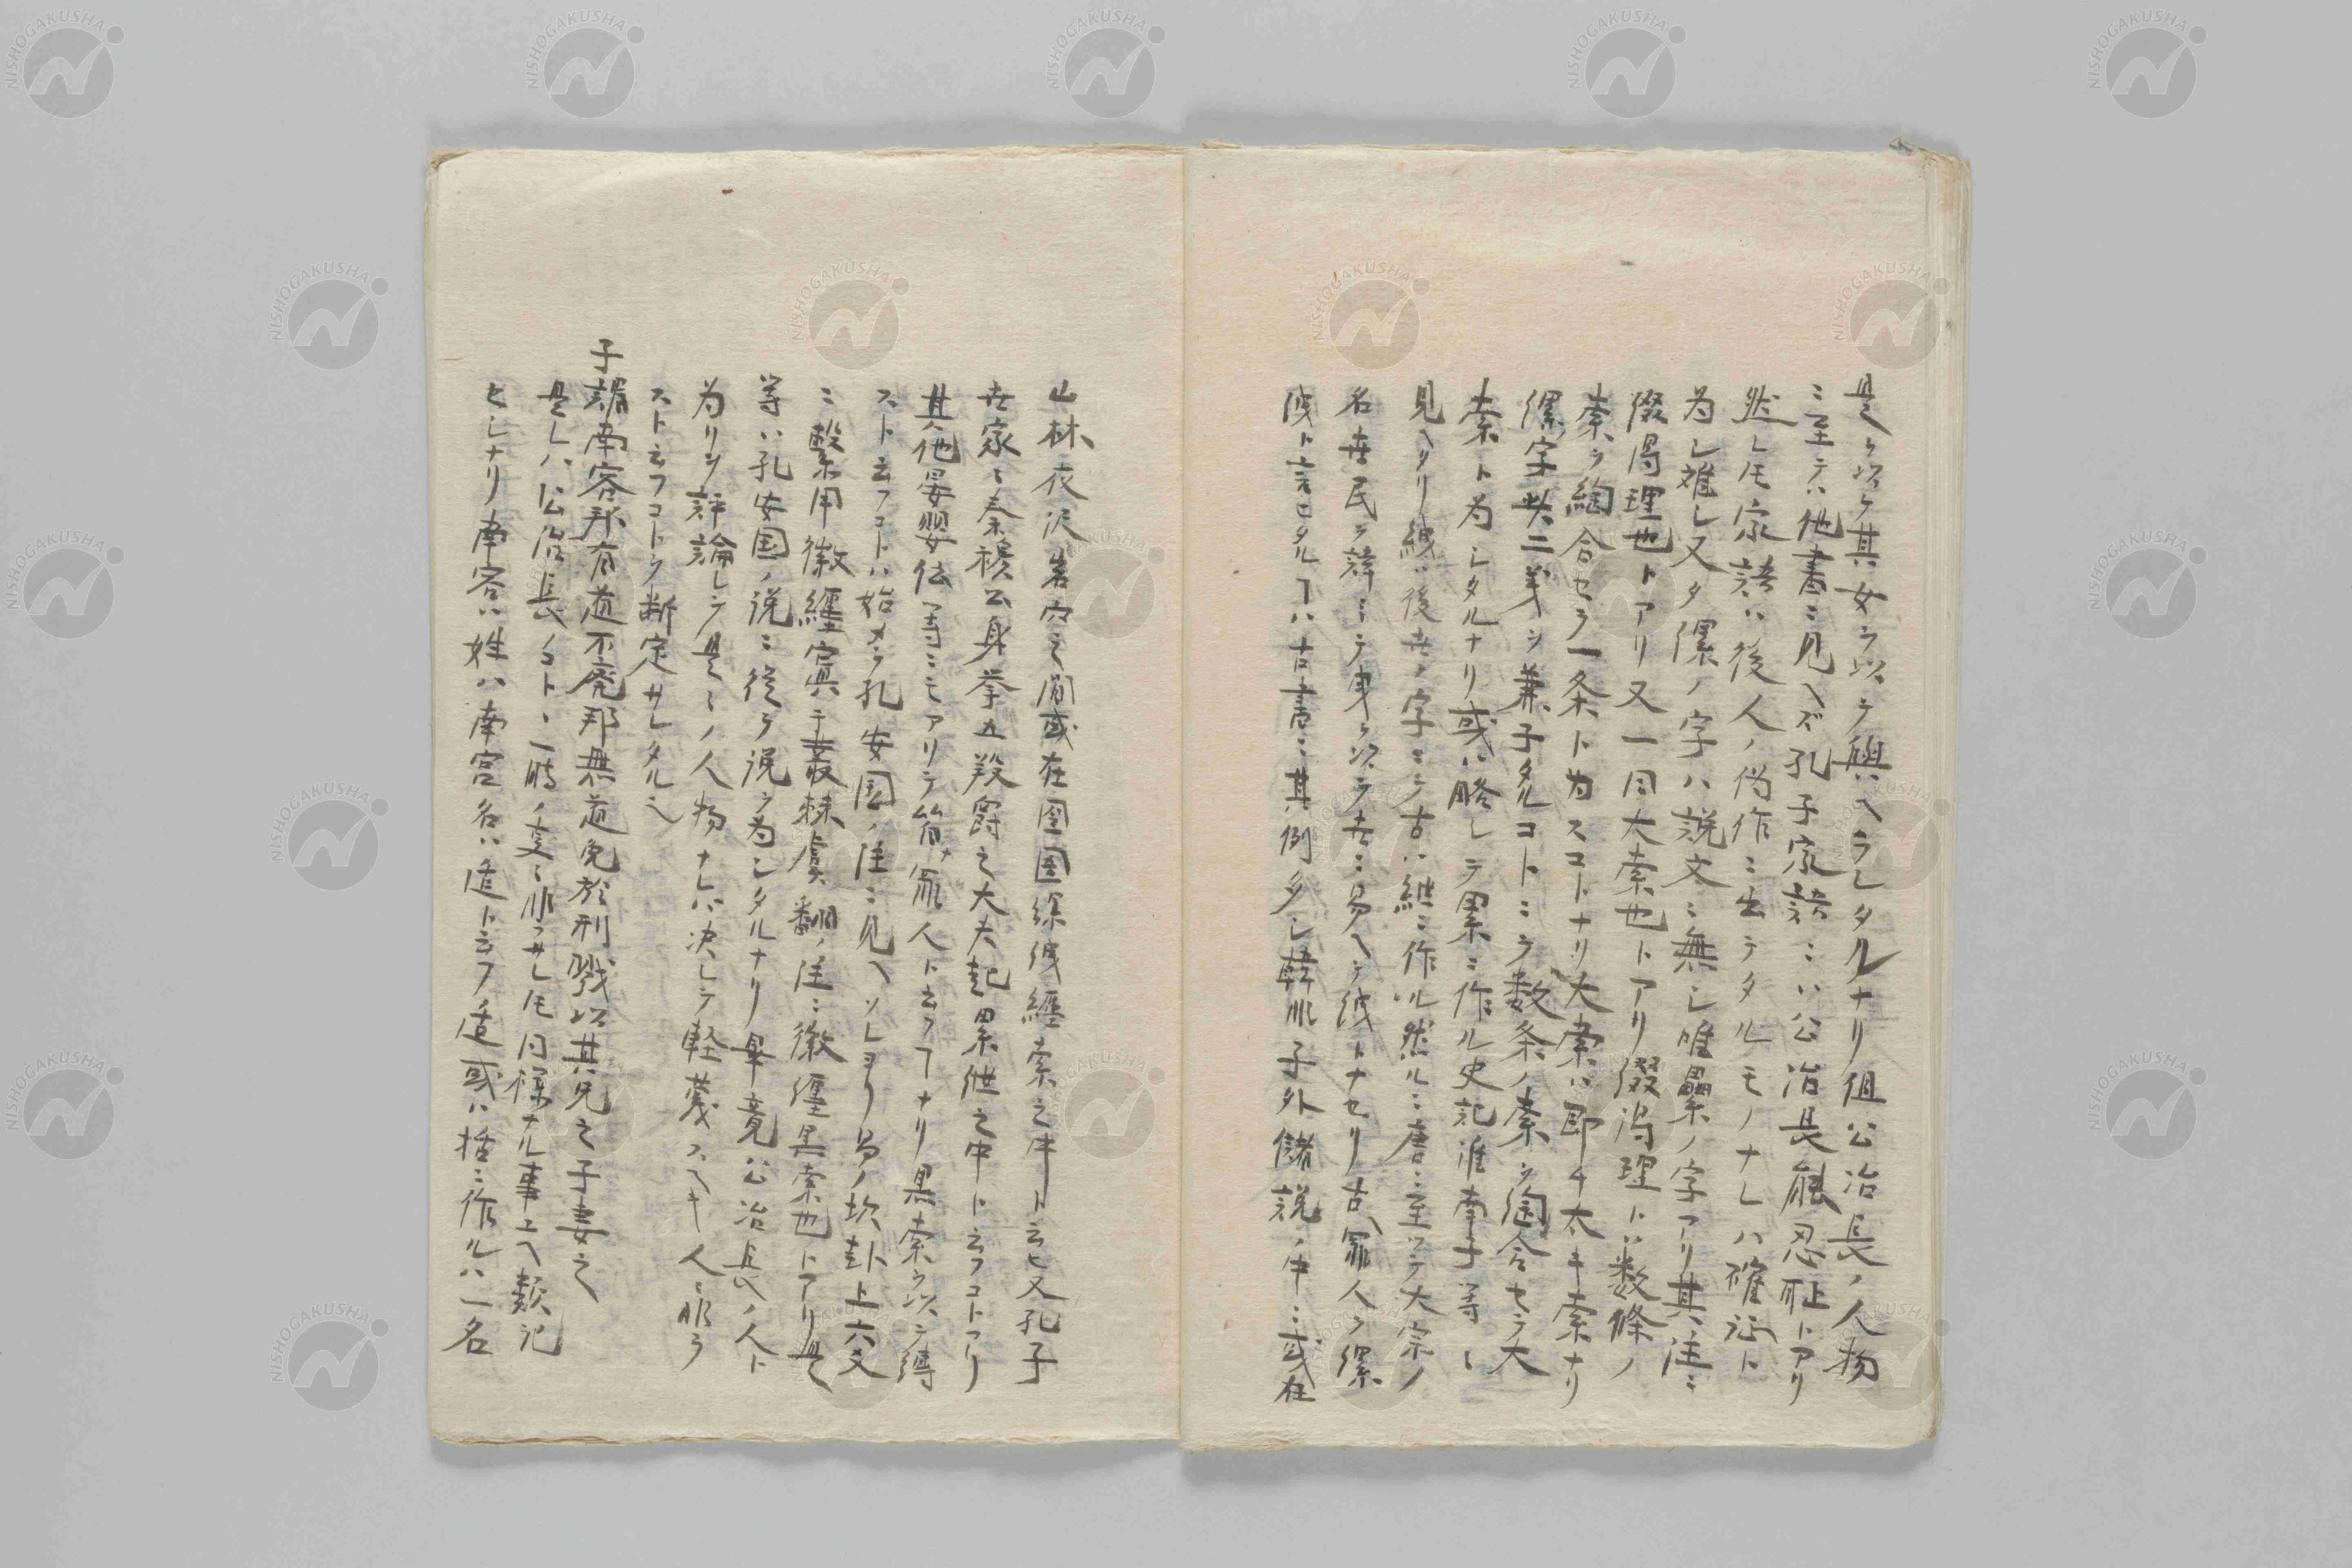 是ヲ以テ其女ヲ以テ與ヘラレタルナリ但公冶長ノ人物
ニ至テハ他書ニ見ヘズ孔子家語ニハ公冶長能忍耻トアリ
然レ𪜈家語ハ後人ノ偽作ニ出テタルモノナレハ確証ト
為シ難シ又タ縲ノ字ハ説文ニ無シ唯纍ノ字アリ其注ニ
綴得理也トアリ又一曰大索也トアリ綴得理トハ数條ノ
索ヲ綯合セテ一条ト為スコトナリ大索ハ即チ太キ索ナリ
縲字此二義ヲ兼子タルコトニテ数条ノ索ヲ綯合セテ大
索ト為シタルナリ或ハ略シテ累ニ作ル史記淮南子等ニ
見ヘタリ絏ハ後世ノ字ニテ古ハ紲ニ作ル然ルニ唐ニ至ツテ太宗ノ
名世民ヲ諱ミテ曳ヲ以テ世ニ易ヘテ絏トナセリ古ヘ罪人ヲ縲
絏ト言ヒタルヿハ古書ニ其例多シ韓非子外儲説ノ中ニ或在
山林夜沢岩穴之間或在囹圄縲絏纆索之中ト云ヒ又孔子
世家ニ秦穆公身挙五羖爵之大夫起累紲之中ト云フコトアリ
其他晏嬰伝等ニモアリテ皆ナ罪人ト云フヿナリ黒索ヲ以テ縛
スト云フコトハ始メテ孔安国ノ注ニ見ヘソレヨリ易ノ坎卦上六爻
ニ繫用徽纆寘于叢棘虞翻ノ注ニ徽纆黒索也トアリ是
等ハ孔安国ノ説ニ従テ説ヲ為シタルナリ畢竟公冶長ノ人ト
為リヲ評論シテ是ミノ人物ナレハ决シテ軽蔑スヘキ人ニ非ラ
スト云フコトヲ断定サレタル也
子謂南容邦有道不廃邦無道免於刑戮以其兄之子妻之
是レハ公冶長ノコトヽ一時ノ事ニ非ラサレ𪜈同様ナル事ユヘ類記
セシナリ南容ハ姓ハ南宮名ハ适ト云フ适或ハ括ニ作ルハ一名